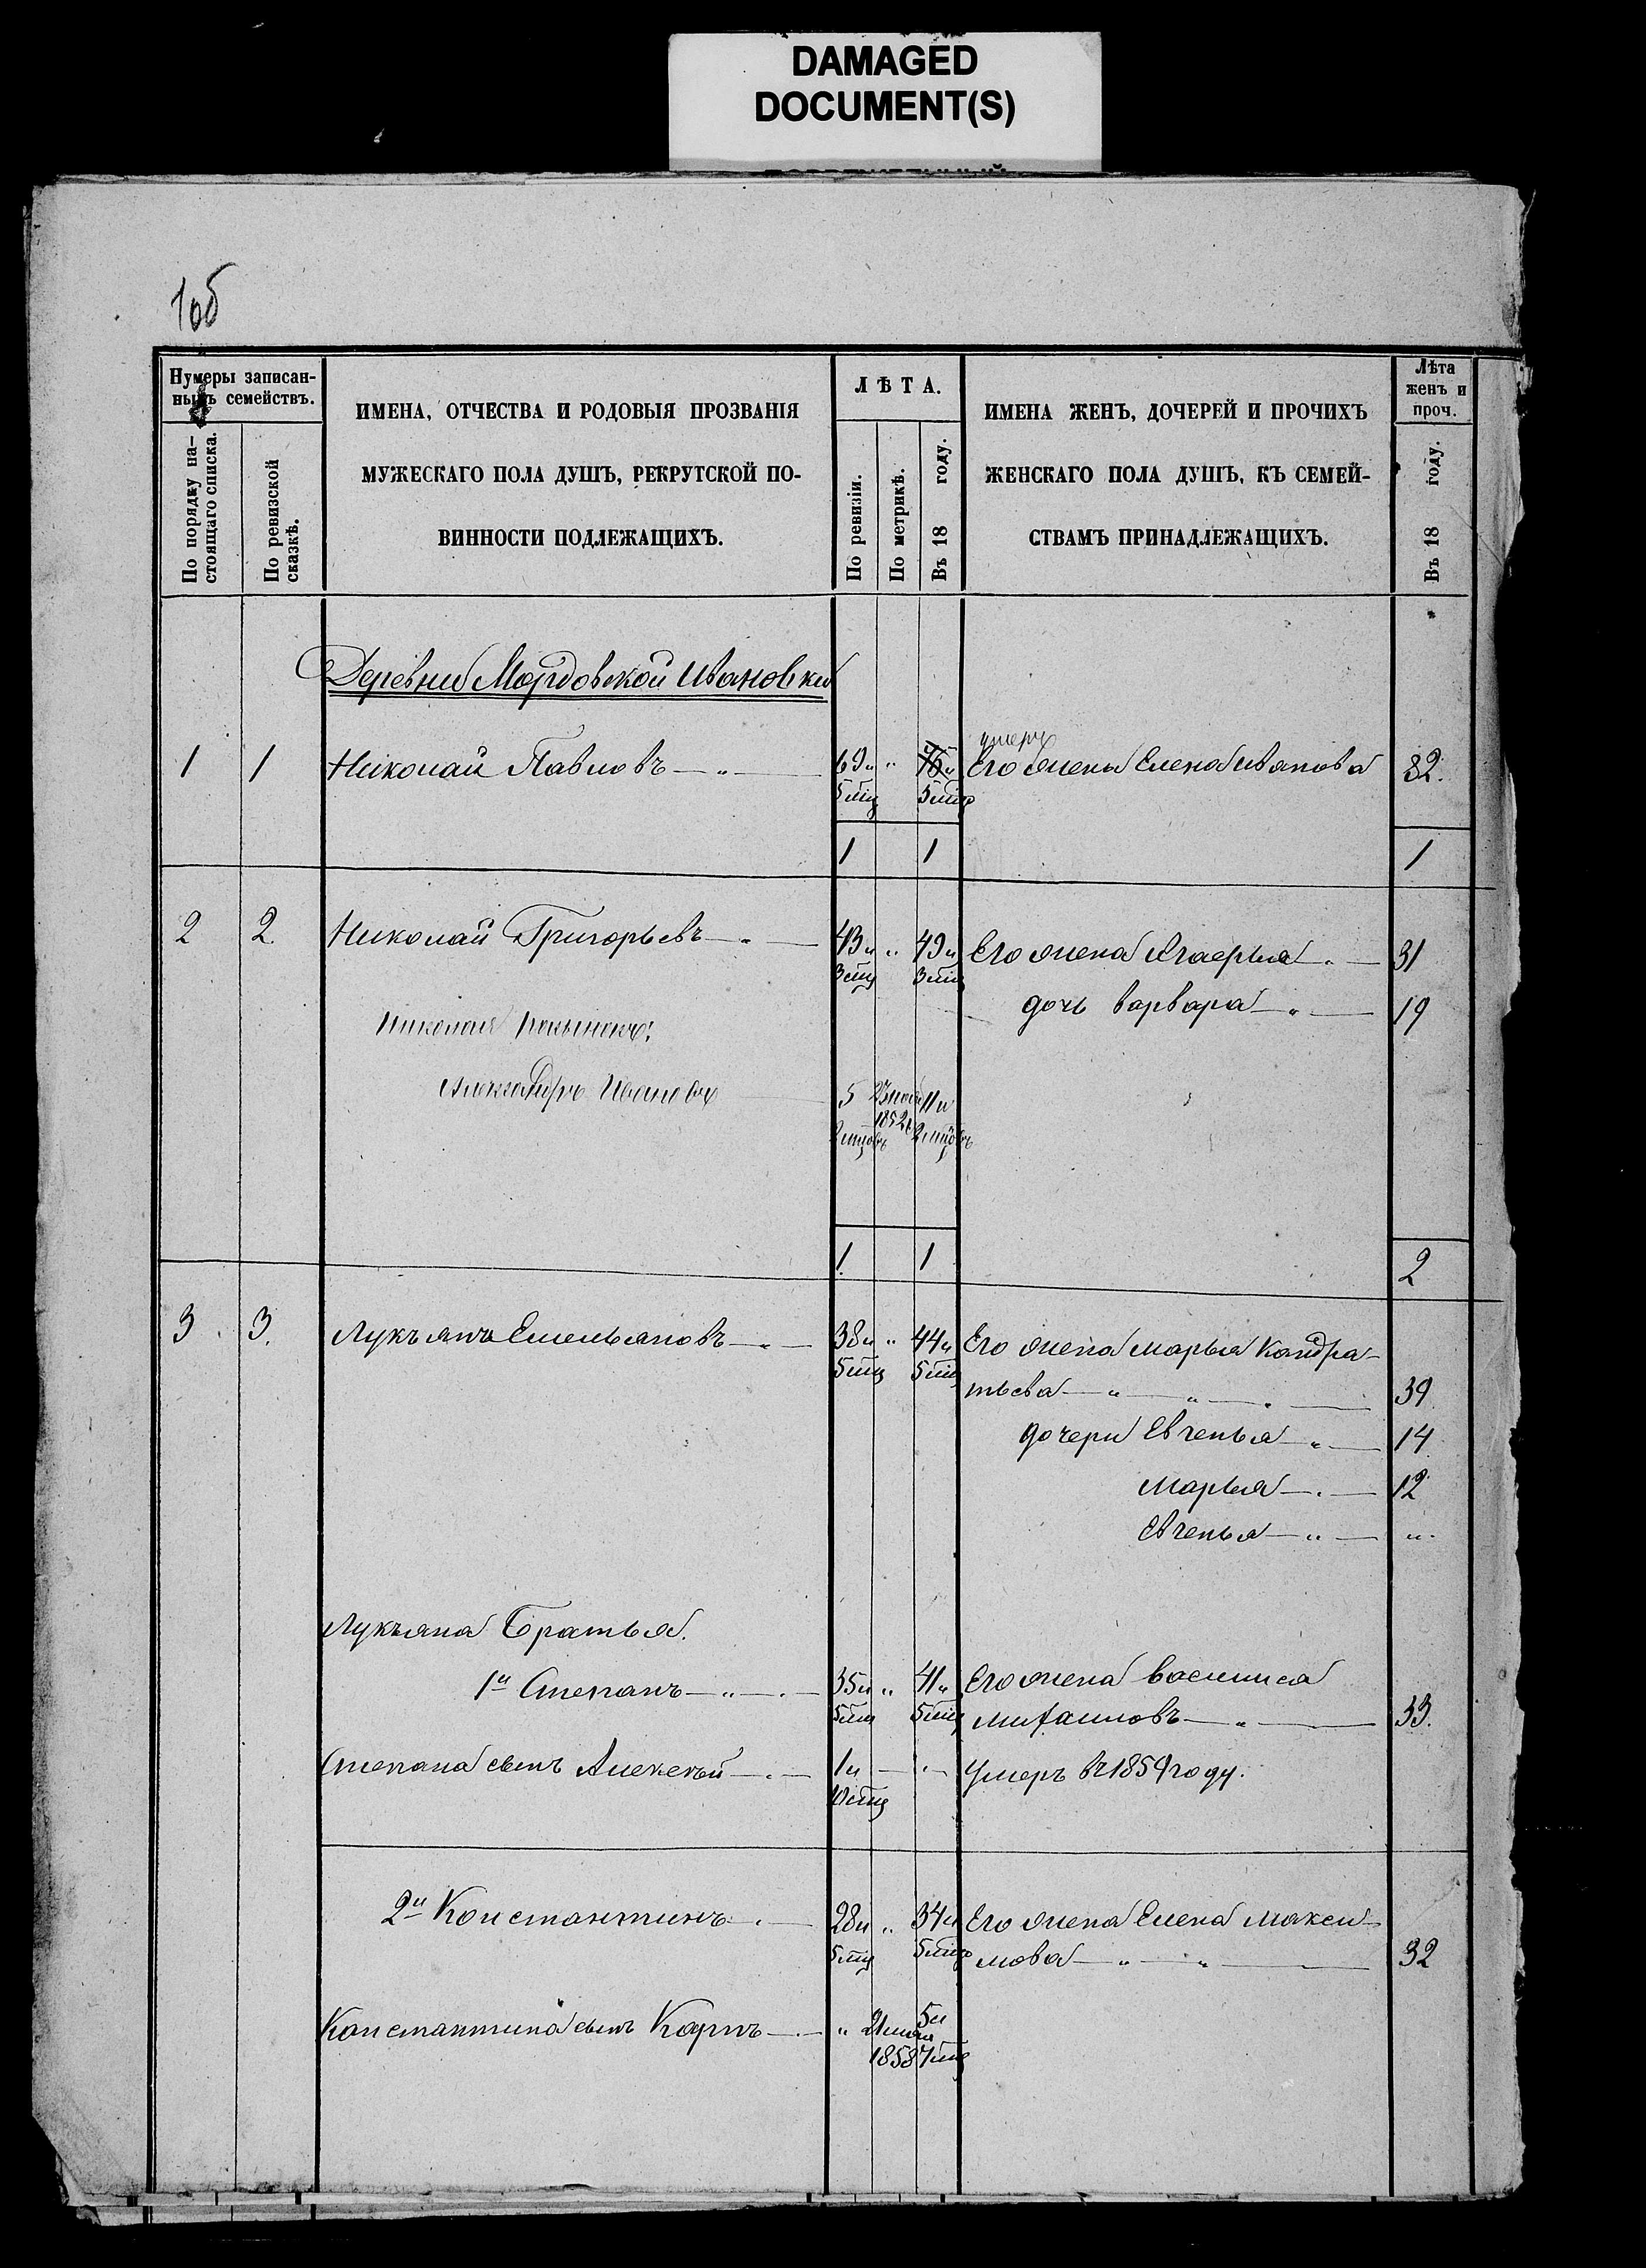 DAMAGED
DOCUMENT(S)
1об
Нумеры записан-
ныхъ семействъ.
По порядку на-
стоящаго списка.
По ревизской
сказкѣ.
ИМЕНА, ОТЧЕСТВА И РОДОВЫЯ ПРОЗВАНІЯ
МУЖЕСКАГО ПОЛА ДУШЪ, РЕКРУТСКОЙ ПО-
ВИННОСТИ ПОДЛЕЖАЩИХЪ.
ЛѢТА.
По ревизіи.
По метрикѣ.
Въ 18 году.
ИМЕНА ЖЕНЪ, ДОЧЕРЕЙ И ПРОЧИХЪ
ЖЕНСКАГО ПОЛА ДУШЪ, КЪ СЕМЕЙ-
СТВАМЪ ПРИНАДЛЕЖАЩИХЪ.
Лѣта
женъ и
проч.
Въ 18 году.
Деревни Мордовской Ивановки
умеръ
1 1 Николай Павловъ 69и " 75и Его жена Елена Иванова 82.
5мц 5мц
1 1 1
2 2. Николай Григорьевъ 43и " 49и Его жена Агафья 31
3мц 3мц
дочь Варвара 19
Николая
Александръ Ивановъ 5 11и
1852
1 1 2
3. 3. Лукъянъ Емельяновъ 38и " 44и Его жена Марья Кандра-
5мц 5мц
тьева 39
дочери Евгенья 14
Марья 12
Евгенья "
Лукъяна Братья.
1й Степанъ 35и " 41и Его жена Василиса
5мц 5мц
Михаиловъ 33.
Степана сынъ Алексѣй 1и Умеръ въ 1859 году.
10мц
2й Константинъ 28и " 34и Его жена Елена Макси-
5мц 5мц
мова 32
Константина сынъ Карпъ " 21 мая 5и
1858 7мц